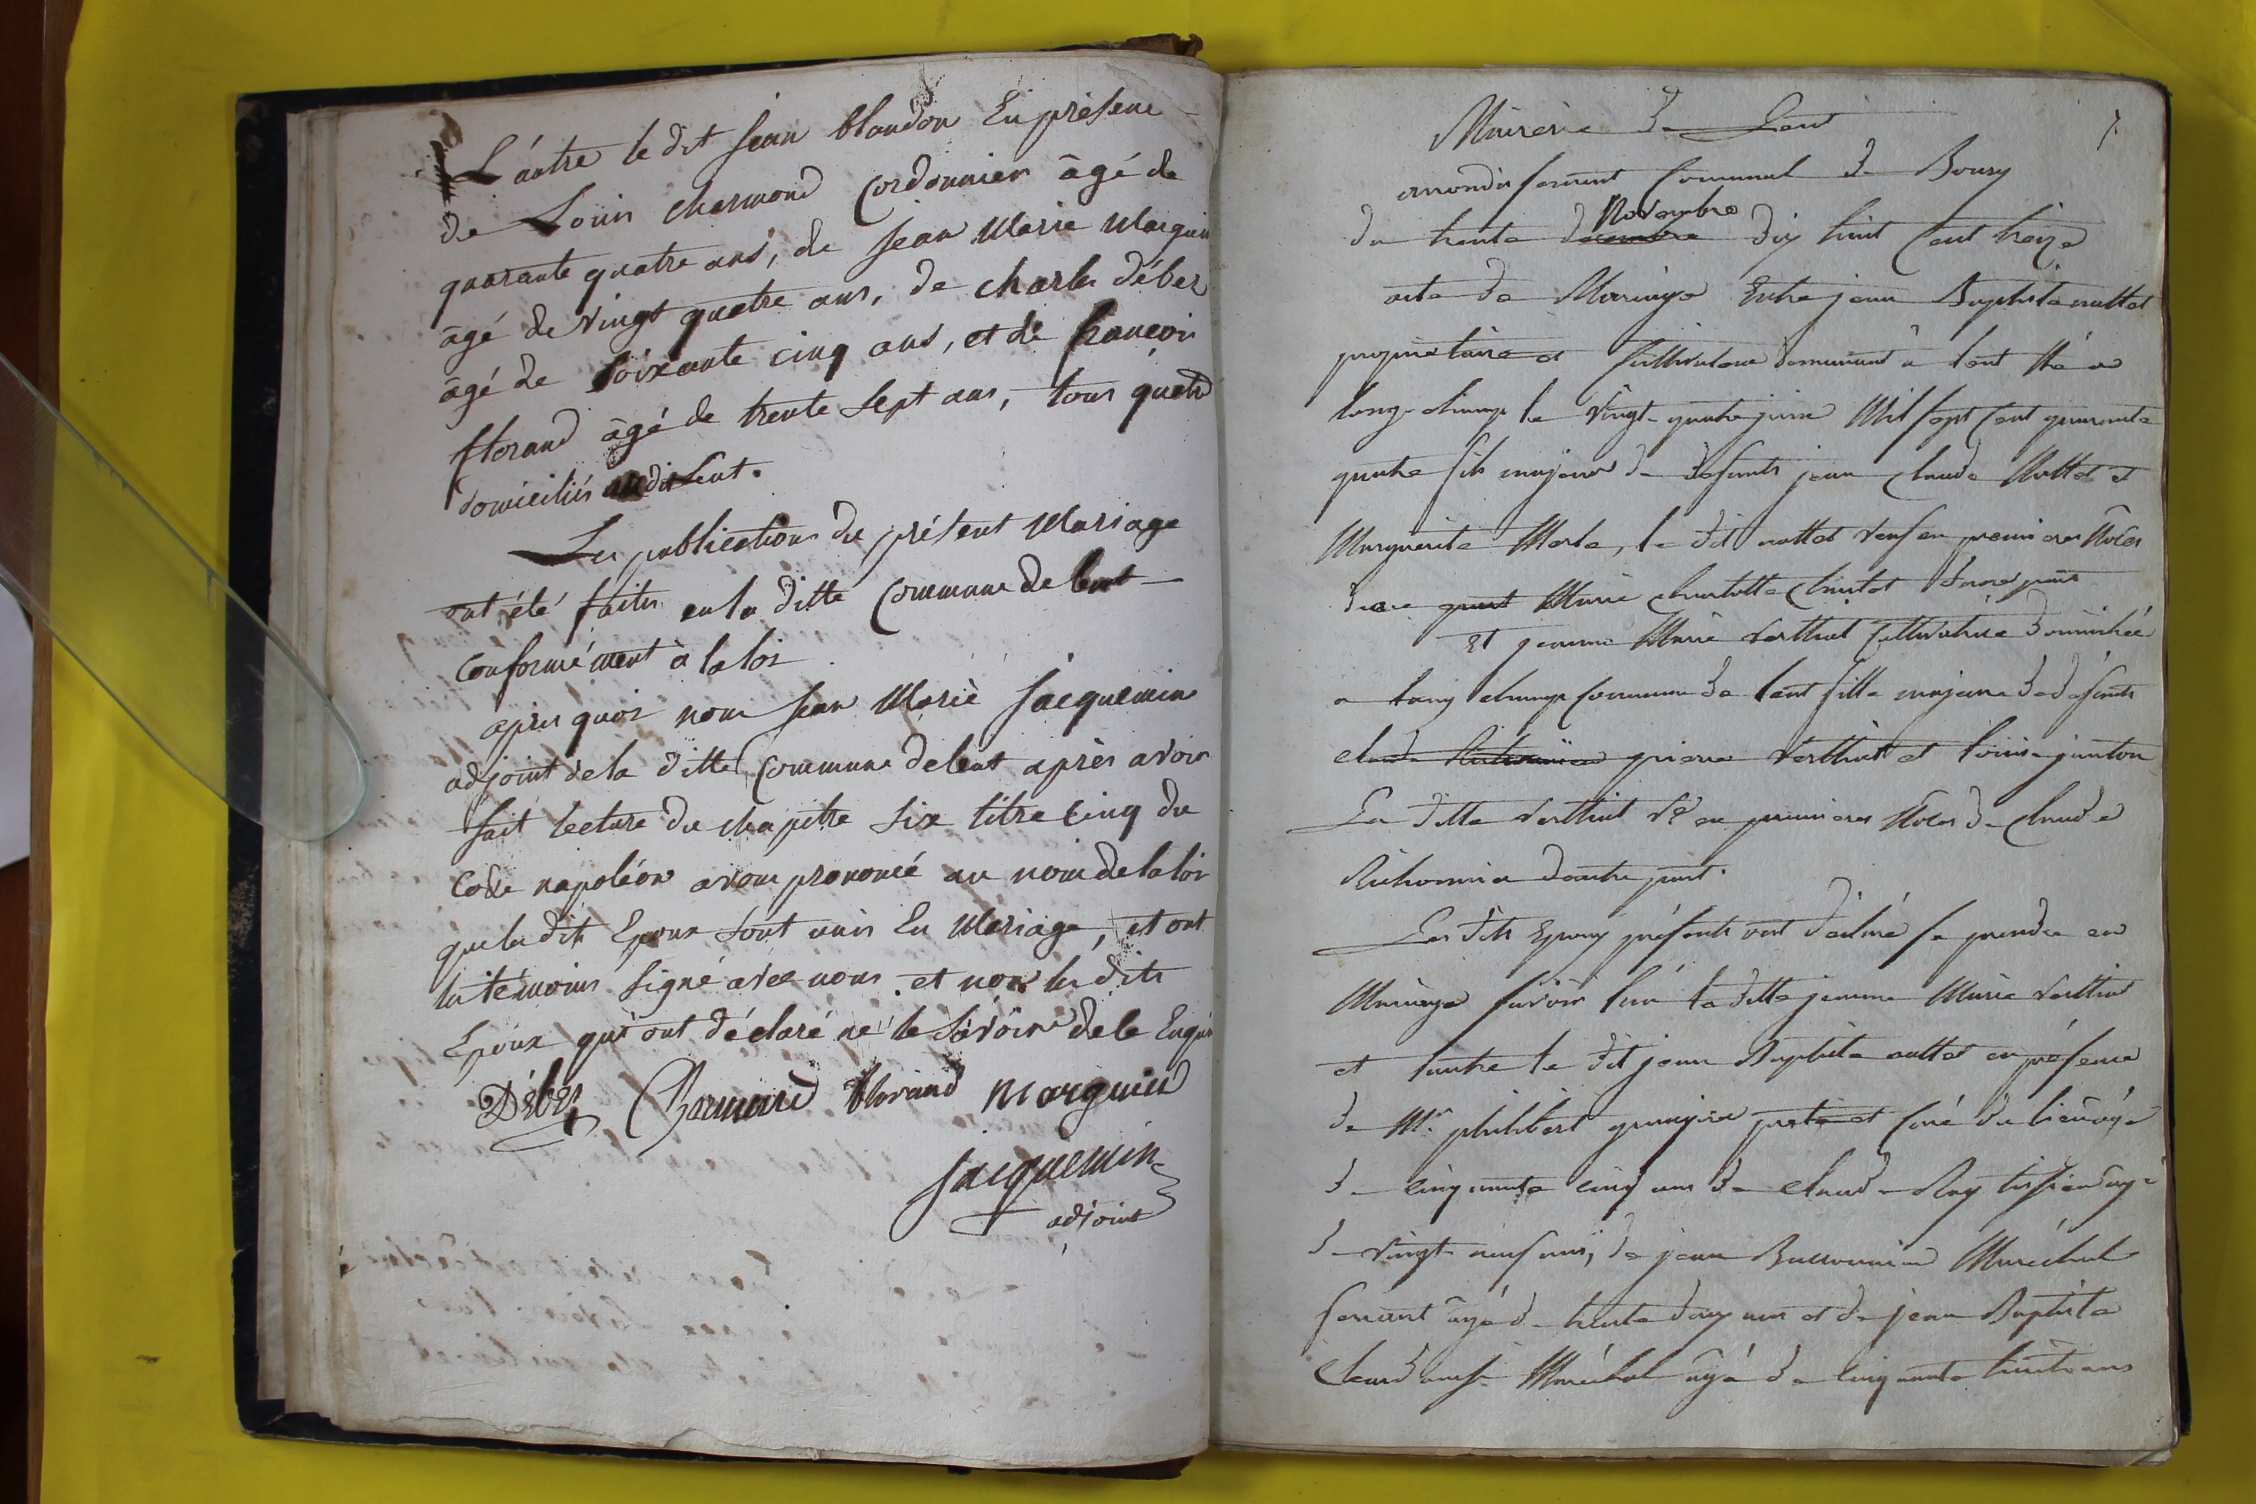 L'autre le dit jean blandon En présence
de Louis charmond Cordonnier âgé de
quarante quatre ans, de jean Marie Marguin
âgé de vingt quatre ans, de charles déber
âgé de soixante cinq ans, et de françois
florand âgé de trente sept ans, tous quatre
domiciliés audit Lent.
Les publications du présent Mariage
ont été faites en la ditte Commune de lent
conformément à la loi
apres quoi nous jean Marie jacquemin
adjoint de la ditte Commune de lent après avoir
fait lecture du chapitre six titre cinq du
Code napoléon avons prononcé au nom de la loi
que les dits Epoux sont unis En Mariage, et ont
les témoins signé avec nous et non les dits
Epoux qui ont déclaré ne le savoir de le Enquis
Déber Charmond florand Marguin
jacquemin
adjoint
Mairerie de Lent
arrondissement Communal de Bourg
Novembre
du trente decembre dix huit Cent treize
acte de Mariage Entre jean Baptiste nallet
propriétaire et Cultivateur demeurant à lent Né a
long-champ le vingt-quatre juin Mil sept Cent quarante
quatre fils majeur de défunts jean claude Nallet et
Marguerite Morle, le dit nallet veuf en premieres Nôces
de Marie charlotte d'une part
Et jeanne Marie verthiat Cultivatrice domiciliée
a long champ Commune de lent fille majeure de défunts
claude pierre verthiat et louise janton
La ditte verthiat Ve en premieres Nôces de Claude
Richonnier d'autre part.
Les dits Epoux présents ont déclaré se prendre en
Mariage savoir l'un la ditte jeanne Marie verthiat
et l'autre le dit jean Baptiste nallet en présence
de Mr. philibert prêtre et Curé du lieu âgé
de cinquante cinq ans de claude Ray tissier âgé
de vingt-neuf ans, de jean Maréchal
ferrant âgé de trente deux ans et de jean Baptiste
aussi Maréchal âgé de cinquante huit ans